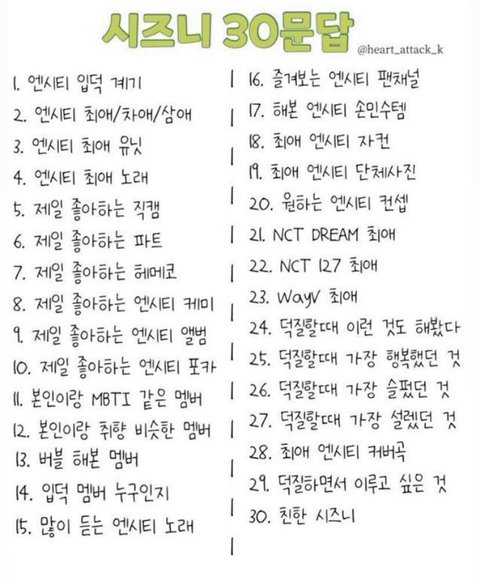 시즈니 30문답
@heart_attack_k
1. 엔시티 입덕 계기
2. 엔시티 최애/차애/삼애
3. 엔시티 최애 유닛
4. 엔시티 최애 노래
5. 제일 좋아하는 직캠
6. 제일 좋아하는 파트
7. 제일 좋아하는 헤메코
8. 제일 좋아하는 엔시티 케미
9. 제일 좋아하는 엔시티 앨범
10. 제일 좋아하는 엔시티 포카
11. 본인이랑 MBTI 같은 멤버
12. 본인이랑 취향 비슷한 멤버
13. 버블 해본 멤버
14. 입덕 멤버 누구인지
15. 많이 듣는 엔시티 노래
16. 즐겨보는 엔시티 팬채널
17. 해본 엔시티 손민수템
18. 최애 엔시티 자컨
19. 최애 엔시티 단체사진
20. 원하는 엔시티 컨셉
21. NCT DREAM 최애
22. NCT 127 최애
23. WayV 최애
24. 덕질할때 이런 것도 해봤다
25. 덕질할때 가장 행복했던 것
26. 덕질할때 가장 슬펐던 것
27. 덕질할때 가장 설렜던 것
28. 최애 엔시티 커버곡
29. 덕질하면서 이루고 싶은 것
30. 친한 시즈니